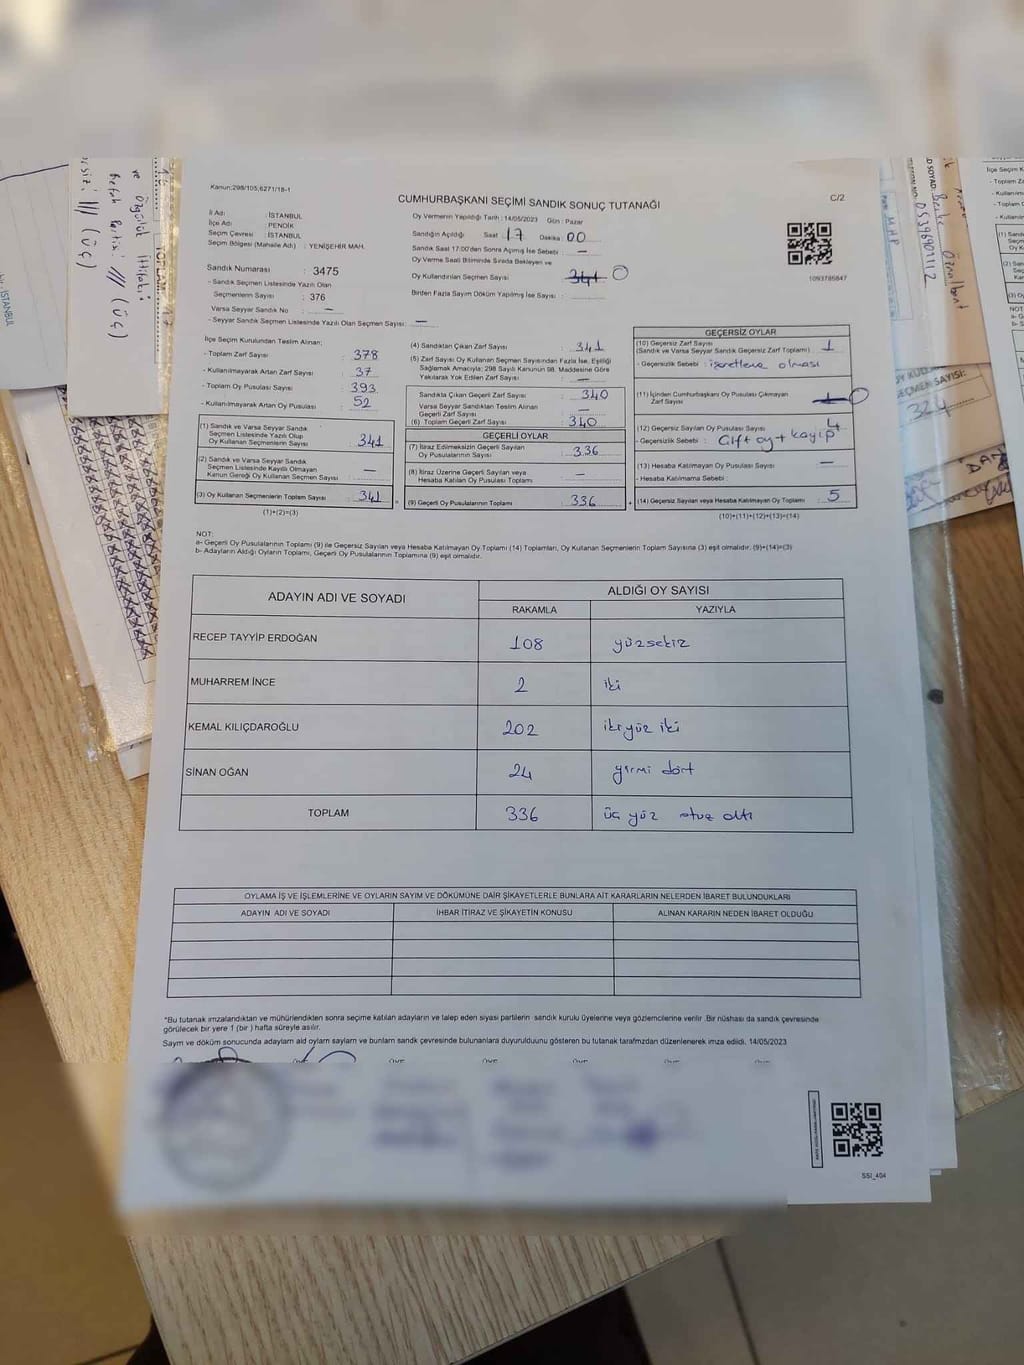 Kanun:298/105,6271/18-1
CUMHURBAŞKANI SEÇİMİ SANDIK SONUÇ TUTANAĞI
C/2
İl Adı : İSTANBUL
İlçe Adı : PENDİK
Seçim Çevresi : İSTANBUL
Seçim Bölgesi (Mahalle Adı) : YENİŞEHİR MAH.
Sandık Numarası : 3475
- Sandık Seçmen Listesinde Yazılı Olan
Seçmenlerin Sayısı : 376
Varsa Seyyar Sandık No : —
- Seyyar Sandık Seçmen Listesinde Yazılı Olan Seçmen Sayısı: —
Oy Vermenin Yapıldığı Tarih : 14/05/2023 Gün : Pazar
Sandığın Açıldığı Saat : 17 Dakika : 00
Sandık Saat 17:00'den Sonra Açılmış İse Sebebi : —
Oy Verme Saati Bitiminde Sırada Bekleyen ve
Oy Kullandırılan Seçmen Sayısı : 341 0
Birden Fazla Sayım Döküm Yapılmış İse Sayısı :
1093785847
İlçe Seçim Kurulundan Teslim Alınan;
- Toplam Zarf Sayısı : 378
- Kullanılmayarak Artan Zarf Sayısı : 37
- Toplam Oy Pusulası Sayısı : 393
- Kullanılmayarak Artan Oy Pusulası : 52
(1) Sandık ve Varsa Seyyar Sandık
Seçmen Listesinde Yazılı Olup
Oy Kullanan Seçmenlerin Sayısı : 341
(2) Sandık ve Varsa Seyyar Sandık
Seçmen Listesinde Kayıtlı Olmayan
Kanun Gereği Oy Kullanan Seçmen Sayısı : —
(3) Oy Kullanan Seçmenlerin Toplam Sayısı : 341
(1)+(2)=(3)
(4) Sandıktan Çıkan Zarf Sayısı : 341
(5) Zarf Sayısı Oy Kullanan Seçmen Sayısından Fazla İse, Eşitliği
Sağlamak Amacıyla; 298 Sayılı Kanunun 98. Maddesine Göre
Yakılarak Yok Edilen Zarf Sayısı : —
Sandıkta Çıkan Geçerli Zarf Sayısı : 340
Varsa Seyyar Sandıktan Teslim Alınan
Geçerli Zarf Sayısı : —
(6) Toplam Geçerli Zarf Sayısı : 340
GEÇERLİ OYLAR
(7) İtiraz Edilmeksizin Geçerli Sayılan
Oy Pusulalarının Sayısı : 336
(8) İtiraz Üzerine Geçerli Sayılan veya
Hesaba Katılan Oy Pusulası Toplamı : —
(9) Geçerli Oy Pusulalarının Toplamı : 336
GEÇERSİZ OYLAR
(10) Geçersiz Zarf Sayısı
(Sandık ve Varsa Seyyar Sandık Geçersiz Zarf Toplamı) : 1
- Geçersizlik Sebebi : işaretleme olması
(11) İçinden Cumhurbaşkanı Oy Pusulası Çıkmayan
Zarf Sayısı : 0
(12) Geçersiz Sayılan Oy Pusulası Sayısı : 4
- Geçersizlik Sebebi : Çift oy + kayıp
(13) Hesaba Katılmayan Oy Pusulası Sayısı : —
- Hesaba Katılmama Sebebi :
(14) Geçersiz Sayılan veya Hesaba Katılmayan Oy Toplamı : 5
(10)+(11)+(12)+(13)=(14)
NOT:
a- Geçerli Oy Pusulalarının Toplamı (9) ile Geçersiz Sayılan veya Hesaba Katılmayan Oy Toplamı (14) Toplamları, Oy Kullanan Seçmenlerin Toplam Sayısına (3) eşit olmalıdır. (9)+(14)=(3)
b- Adayların Aldığı Oyların Toplamı, Geçerli Oy Pusulalarının Toplamına (9) eşit olmalıdır.
ADAYIN ADI VE SOYADI ALDIĞI OY SAYISI
RAKAMLA YAZIYLA
RECEP TAYYİP ERDOĞAN 108 yüzsekiz
MUHARREM İNCE 2 iki
KEMAL KILIÇDAROĞLU 202 ikiyüz iki
SİNAN OĞAN 24 yirmi dört
TOPLAM 336 üç yüz otuz altı
OYLAMA İŞ VE İŞLEMLERİNE VE OYLARIN SAYIM VE DÖKÜMÜNE DAİR ŞİKAYETLERLE BUNLARA AİT KARARLARIN NELERDEN İBARET BULUNDUKLARI
ADAYIN ADI VE SOYADI İHBAR İTİRAZ VE ŞİKAYETİN KONUSU ALINAN KARARIN NEDEN İBARET OLDUĞU
*Bu tutanak imzalandıktan ve mühürlendikten sonra seçime katılan adayların ve talep eden siyasi partilerin sandık kurulu üyelerine veya gözlemcilerine verilir .Bir nüshası da sandık çevresinde
görülecek bir yere 1 (bir ) hafta süreyle asılır.
Sayım ve döküm sonucunda adayların aldı oyların sayların ve bunların sandk çevresinde bulunanlara duyurulduunu gösteren bu tutanak tarafmzdan düzenlenerek imza edildi. 14/05/2023
SSI_404
ve Özgürlük İttifakı
Refah Partisi /// (ÜÇ)
MHP
SEÇMEN SAYISI:
324